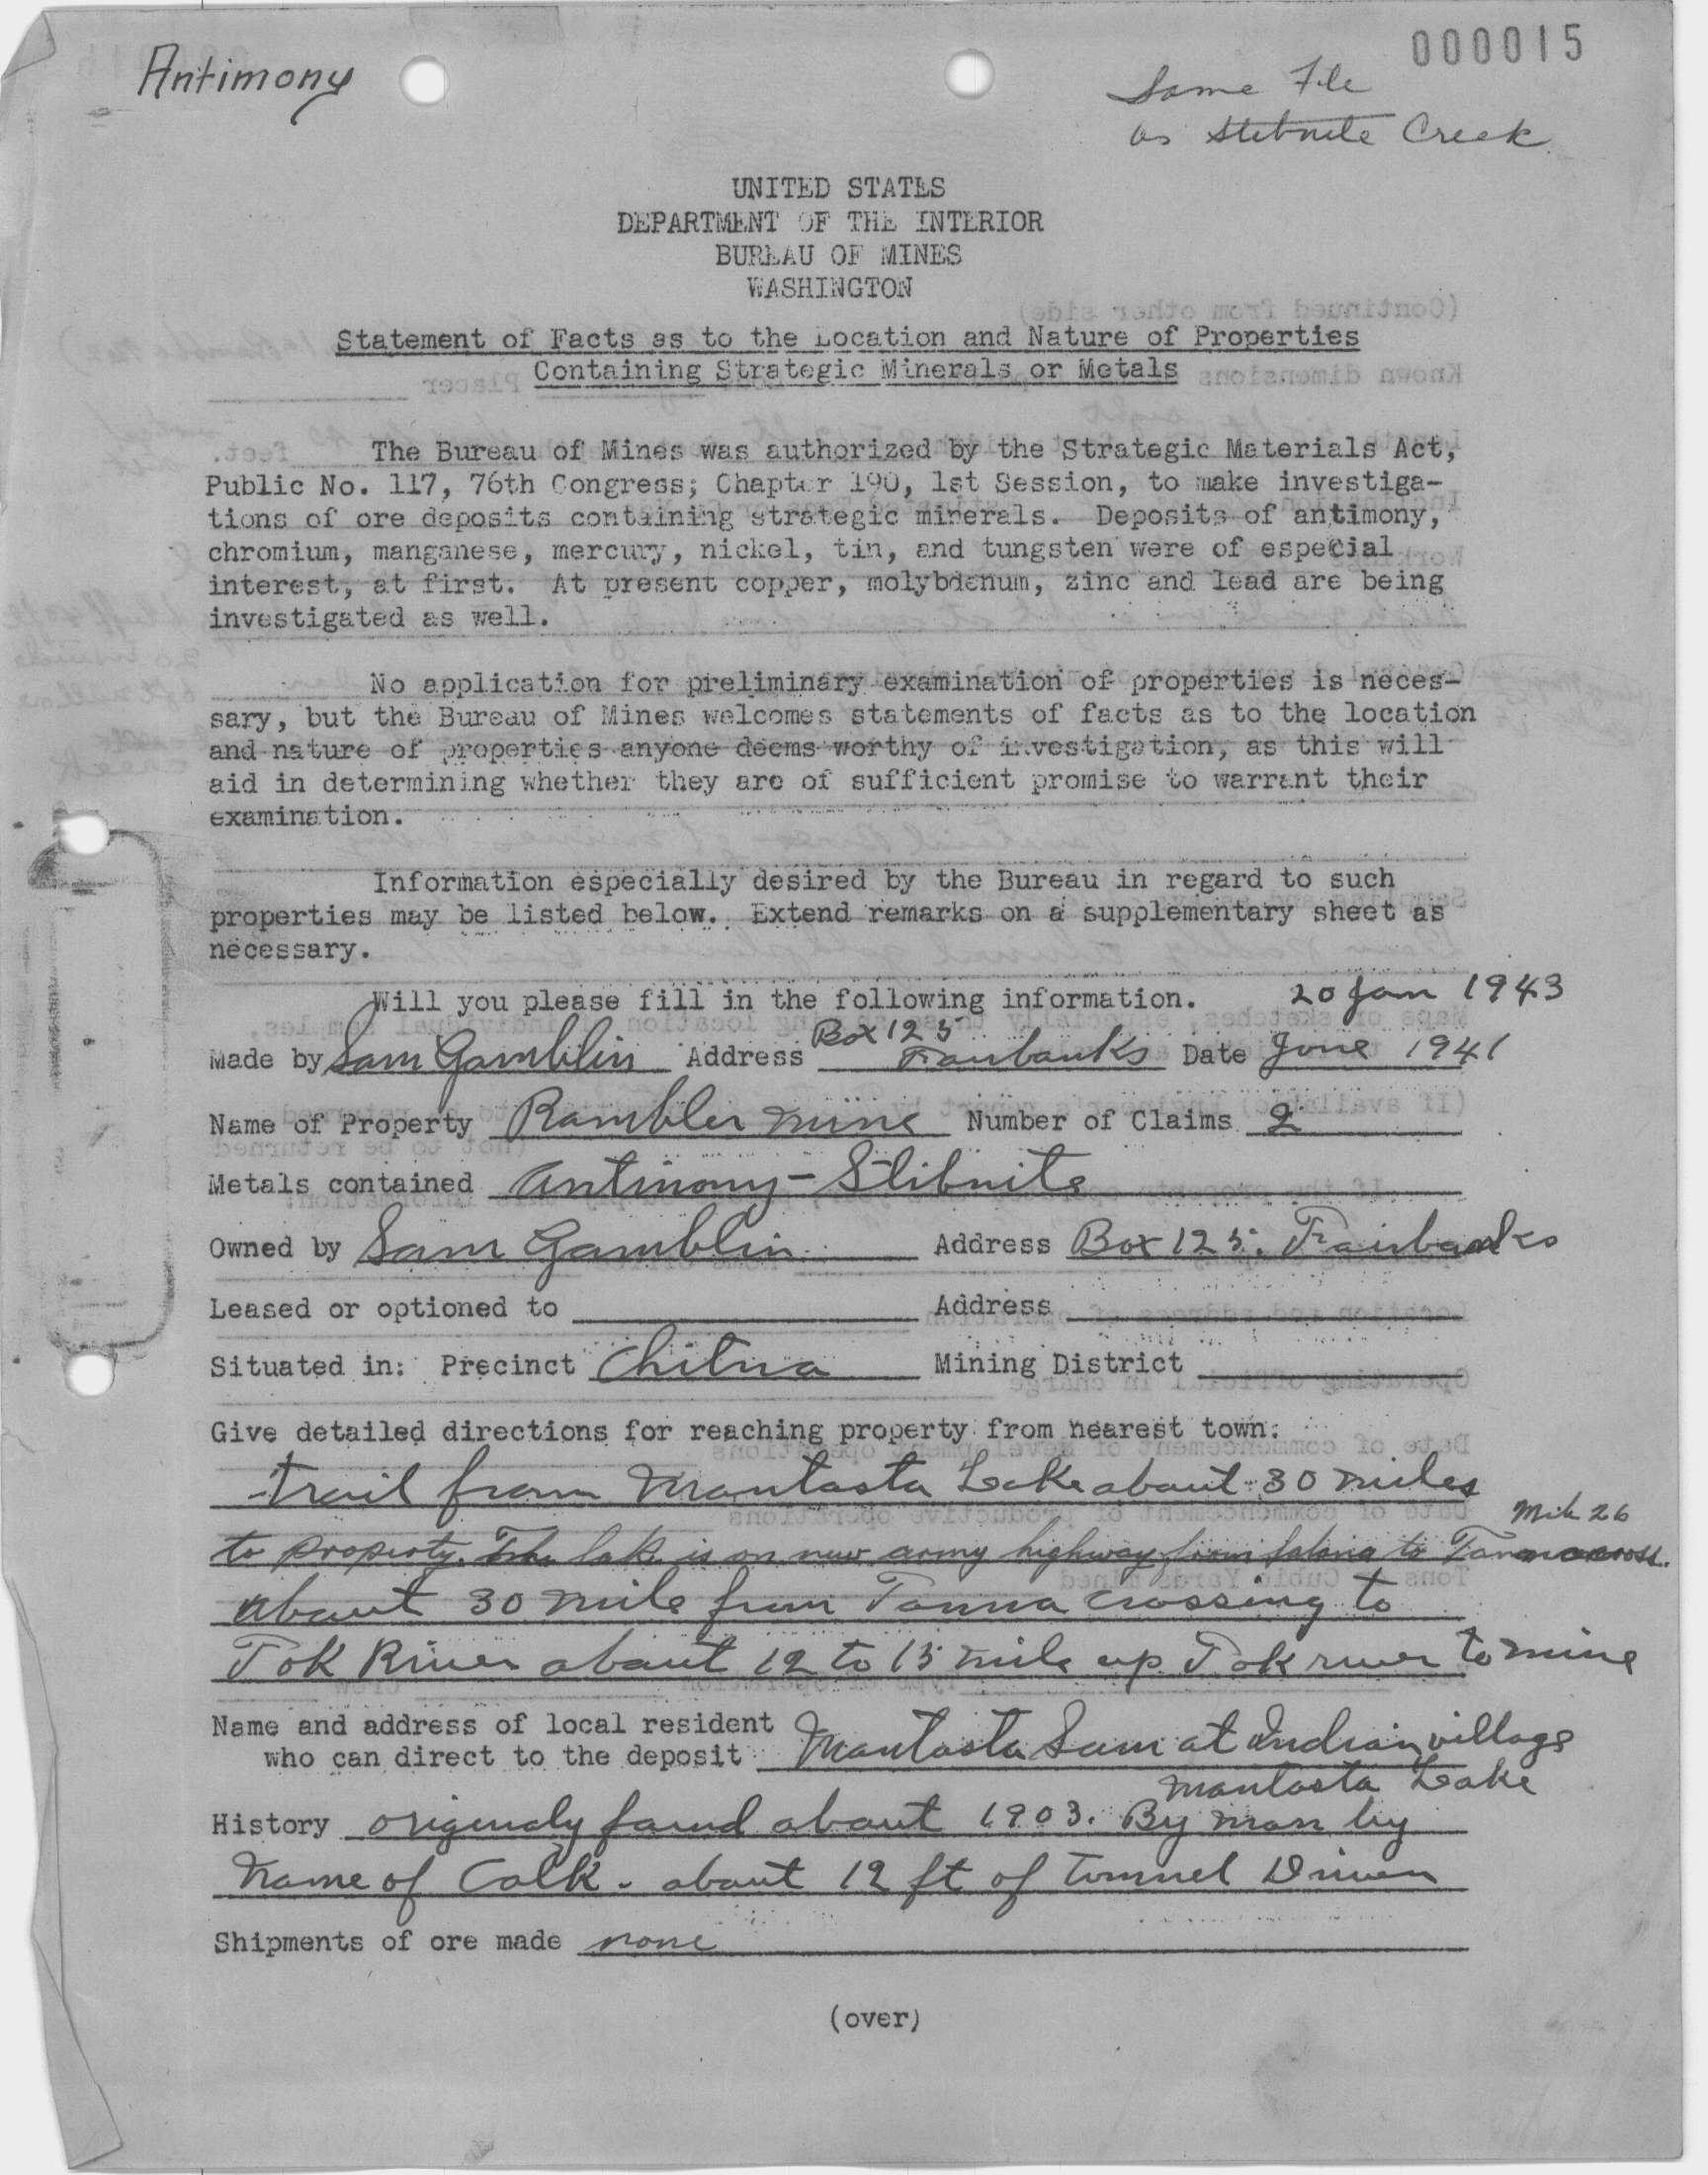 000015
Antimony
Same File
as Stibnite Creek
UNITED STATES
DEPARTMENT OF THE INTERIOR
BUREAU OF MINES
WASHINGTON
Statement of Facts as to the Location and Nature of Properties
Containing Strategic Minerals or Metals
The Bureau of Mines was authorized by the Strategic Materials Act,
Public No. 117, 76th Congress; Chapter 190, 1st Session, to make investiga-
tions of ore deposits containing strategic minerals. Deposits of antimony,
chromium, manganese, mercury, nickel, tin, and tungsten were of especial
interest, at first. At present copper, molybdenum, zinc and lead are being
investigated as well.
No application for preliminary examination of properties is neces-
sary, but the Bureau of Mines welcomes statements of facts as to the location
and nature of properties anyone deems worthy of investigation, as this will
aid in determining whether they are of sufficient promise to warrant their
examination.
Information especially desired by the Bureau in regard to such
properties may be listed below. Extend remarks on a supplementary sheet as
necessary.
Will you please fill in the following information. 20 Jan 1943
Made by Sam Gamblin Address Box 125 Fairbanks Date June 1941
Name of Property Rambler mine Number of Claims 2
Metals contained Antimony - Stibnite
Owned by Sam Gamblin Address Box 125. Fairbanks
Leased or optioned to Address
Situated in: Precinct Chitna Mining District
Give detailed directions for reaching property from nearest town:
trail from Mantasta Lake about 30 miles
Mile 26
to property. The lake is on new army highway from to Tanacross.
about 30 mile from Tanna crossing to
Tok River about 12 to 15 mile up Tok river to mine
Name and address of local resident
who can direct to the deposit Mantasta Sam at Indian village
Mantasta Lake
History originaly found about 1903. By man by
Name of Calk - about 12 ft of tunnel Driven
Shipments of ore made none
(over)